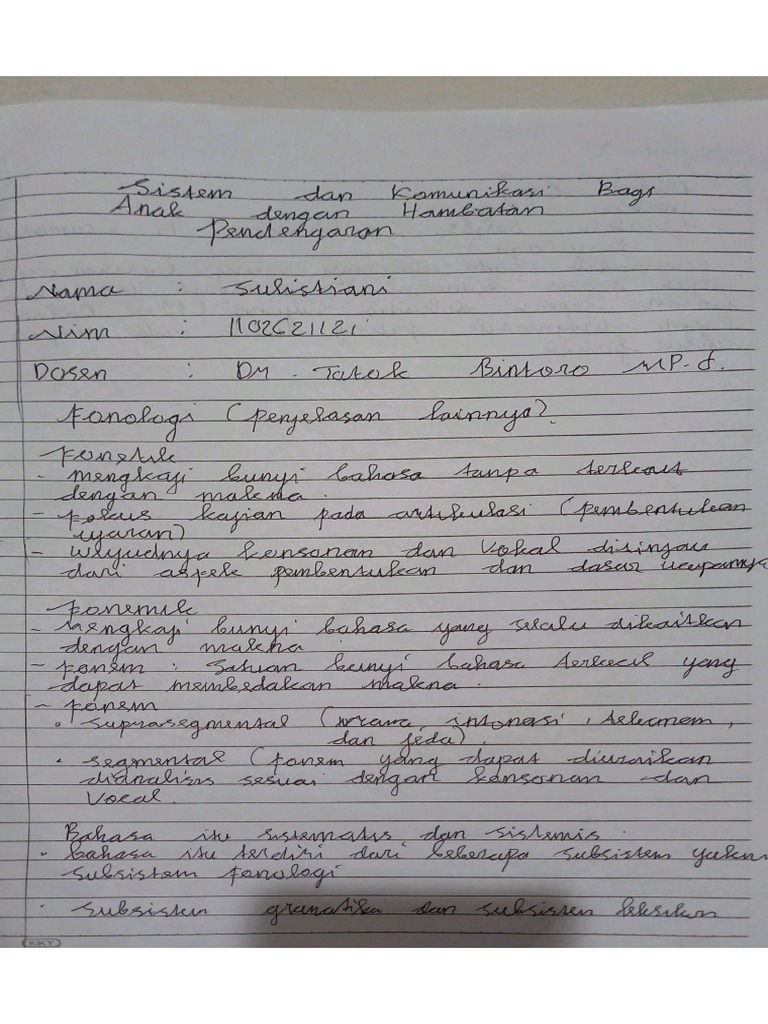 Sistem dan Komunikasi Bagi
Anak dengan Hambatan
Pendengaran
Nama : Sulistiani
Nim : 1102621121
Dosen : Dr. Totok Bintoro MP.d.
Fonologi (penjelasan lainnya)
Fonetik
- mengkaji bunyi bahasa tanpa terkait
dengan makna.
- Fokus kajian pada artikulasi (pembentukan
ujaran)
- Wujudnya konsonan dan Vokal ditinjau
dari aspek pembentukan dan dasar ucapannya
Fonemik
- Mengkaji bunyi bahasa yang selalu dikaitkan
dengan makna
- Fonem : Satuan bunyi bahasa terkecil yang
dapat membedakan makna.
- Fonem
• suprasegmental (irama, intonasi, tekanan,
dan jeda).
• segmental (fonem yang dapat diuraikan
dianalisis sesuai dengan konsonan dan
Vocal.
Bahasa itu sistematis dan sistemis.
• bahasa itu terdiri dari beberapa subsistem yakni
subsistem fonologi
• subsistem gramatika dan subsistem leksikon
KKY